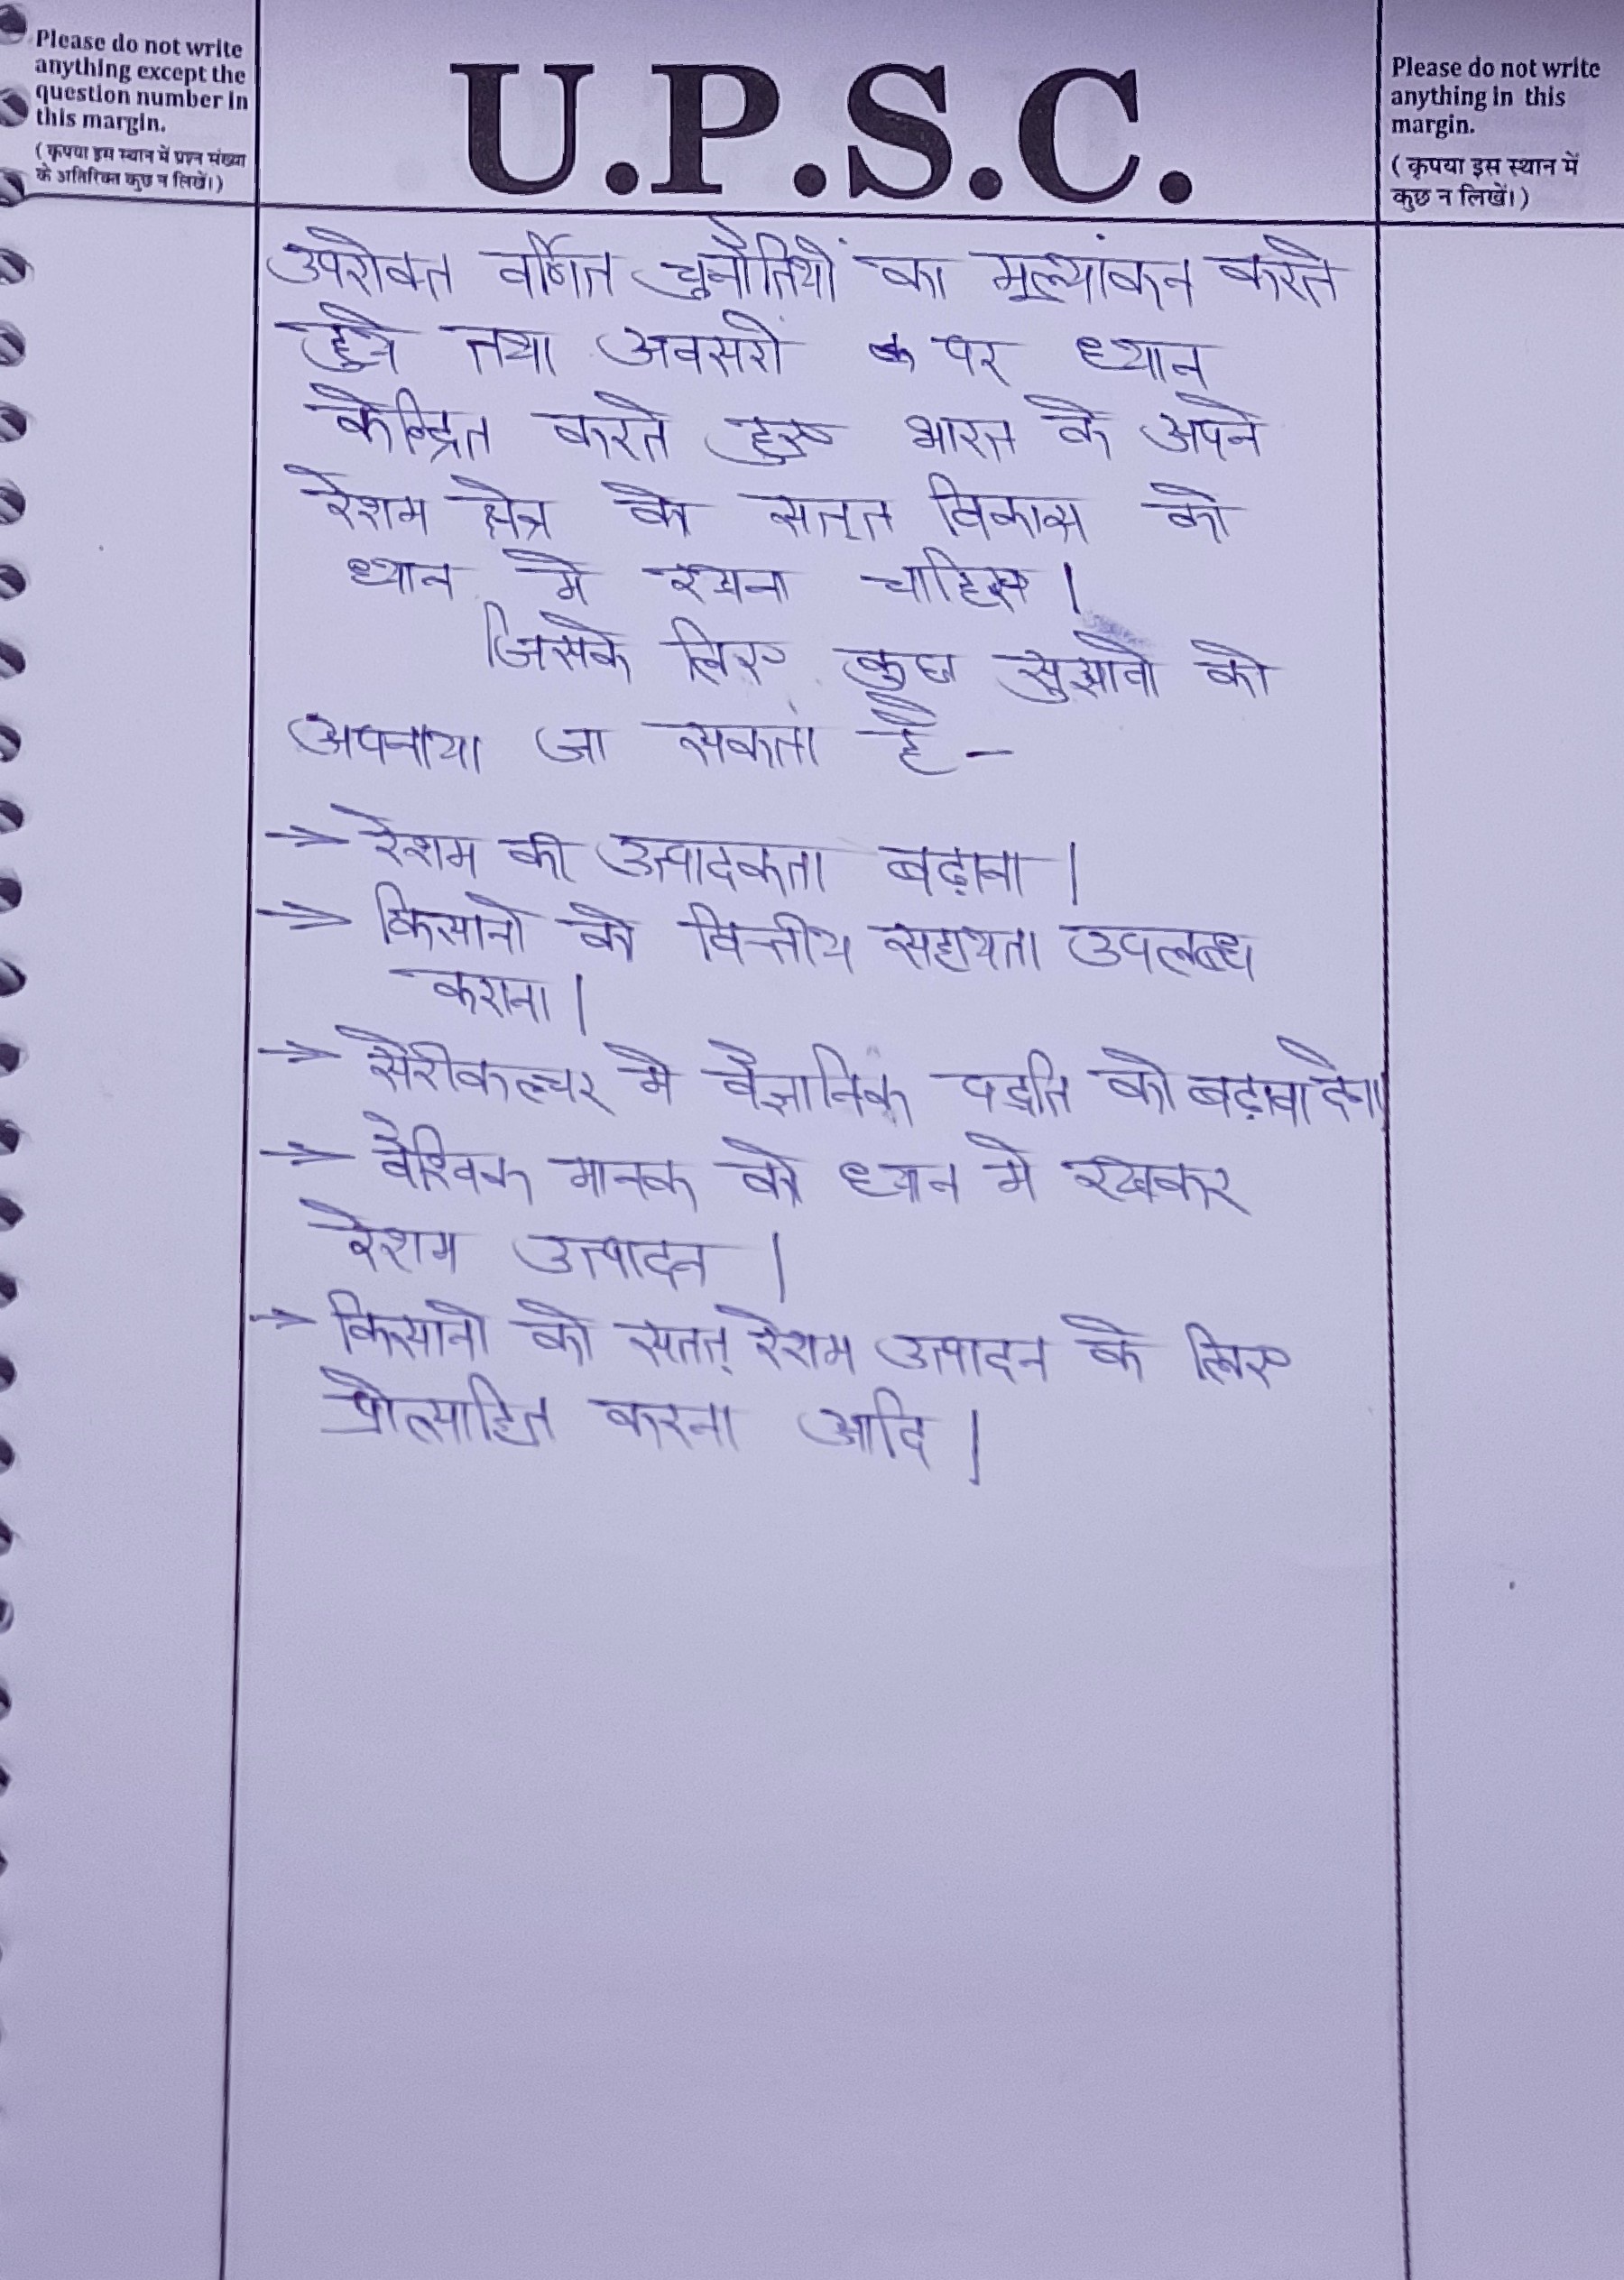 Please do not write
anything except the
question number in
this margin.
( कृपया इस स्थान में प्रश्न संख्या
के अतिरिक्त कुछ न लिखें।)
U.P.S.C.
Please do not write
anything in this
margin.
( कृपया इस स्थान में
कुछ न लिखें।)
उपरोक्त वर्णित चुनौतियों का मूल्यांकन करते
हुये तथा अवसरो पर ध्यान
केन्द्रित करते हुए भारत के अपने
रेशम क्षेत्र के सतत विकास को
ध्यान मे रखना चाहिए।
जिसके लिए कुछ सुझावो को
अपनाया जा सकता है –
→ रेशम की उत्पादकता बढ़ाना।
→ किसानो को वित्तीय सहायता उपलब्ध
कराना।
→ सेरीकल्चर मे वैज्ञानिक पद्धति को बढ़ावा देना।
→ वैश्विक मानक को ध्यान मे रखकर
रेशम उत्पादन।
→ किसानो को सतत् रेशम उत्पादन के लिए
प्रोत्साहित करना आदि।